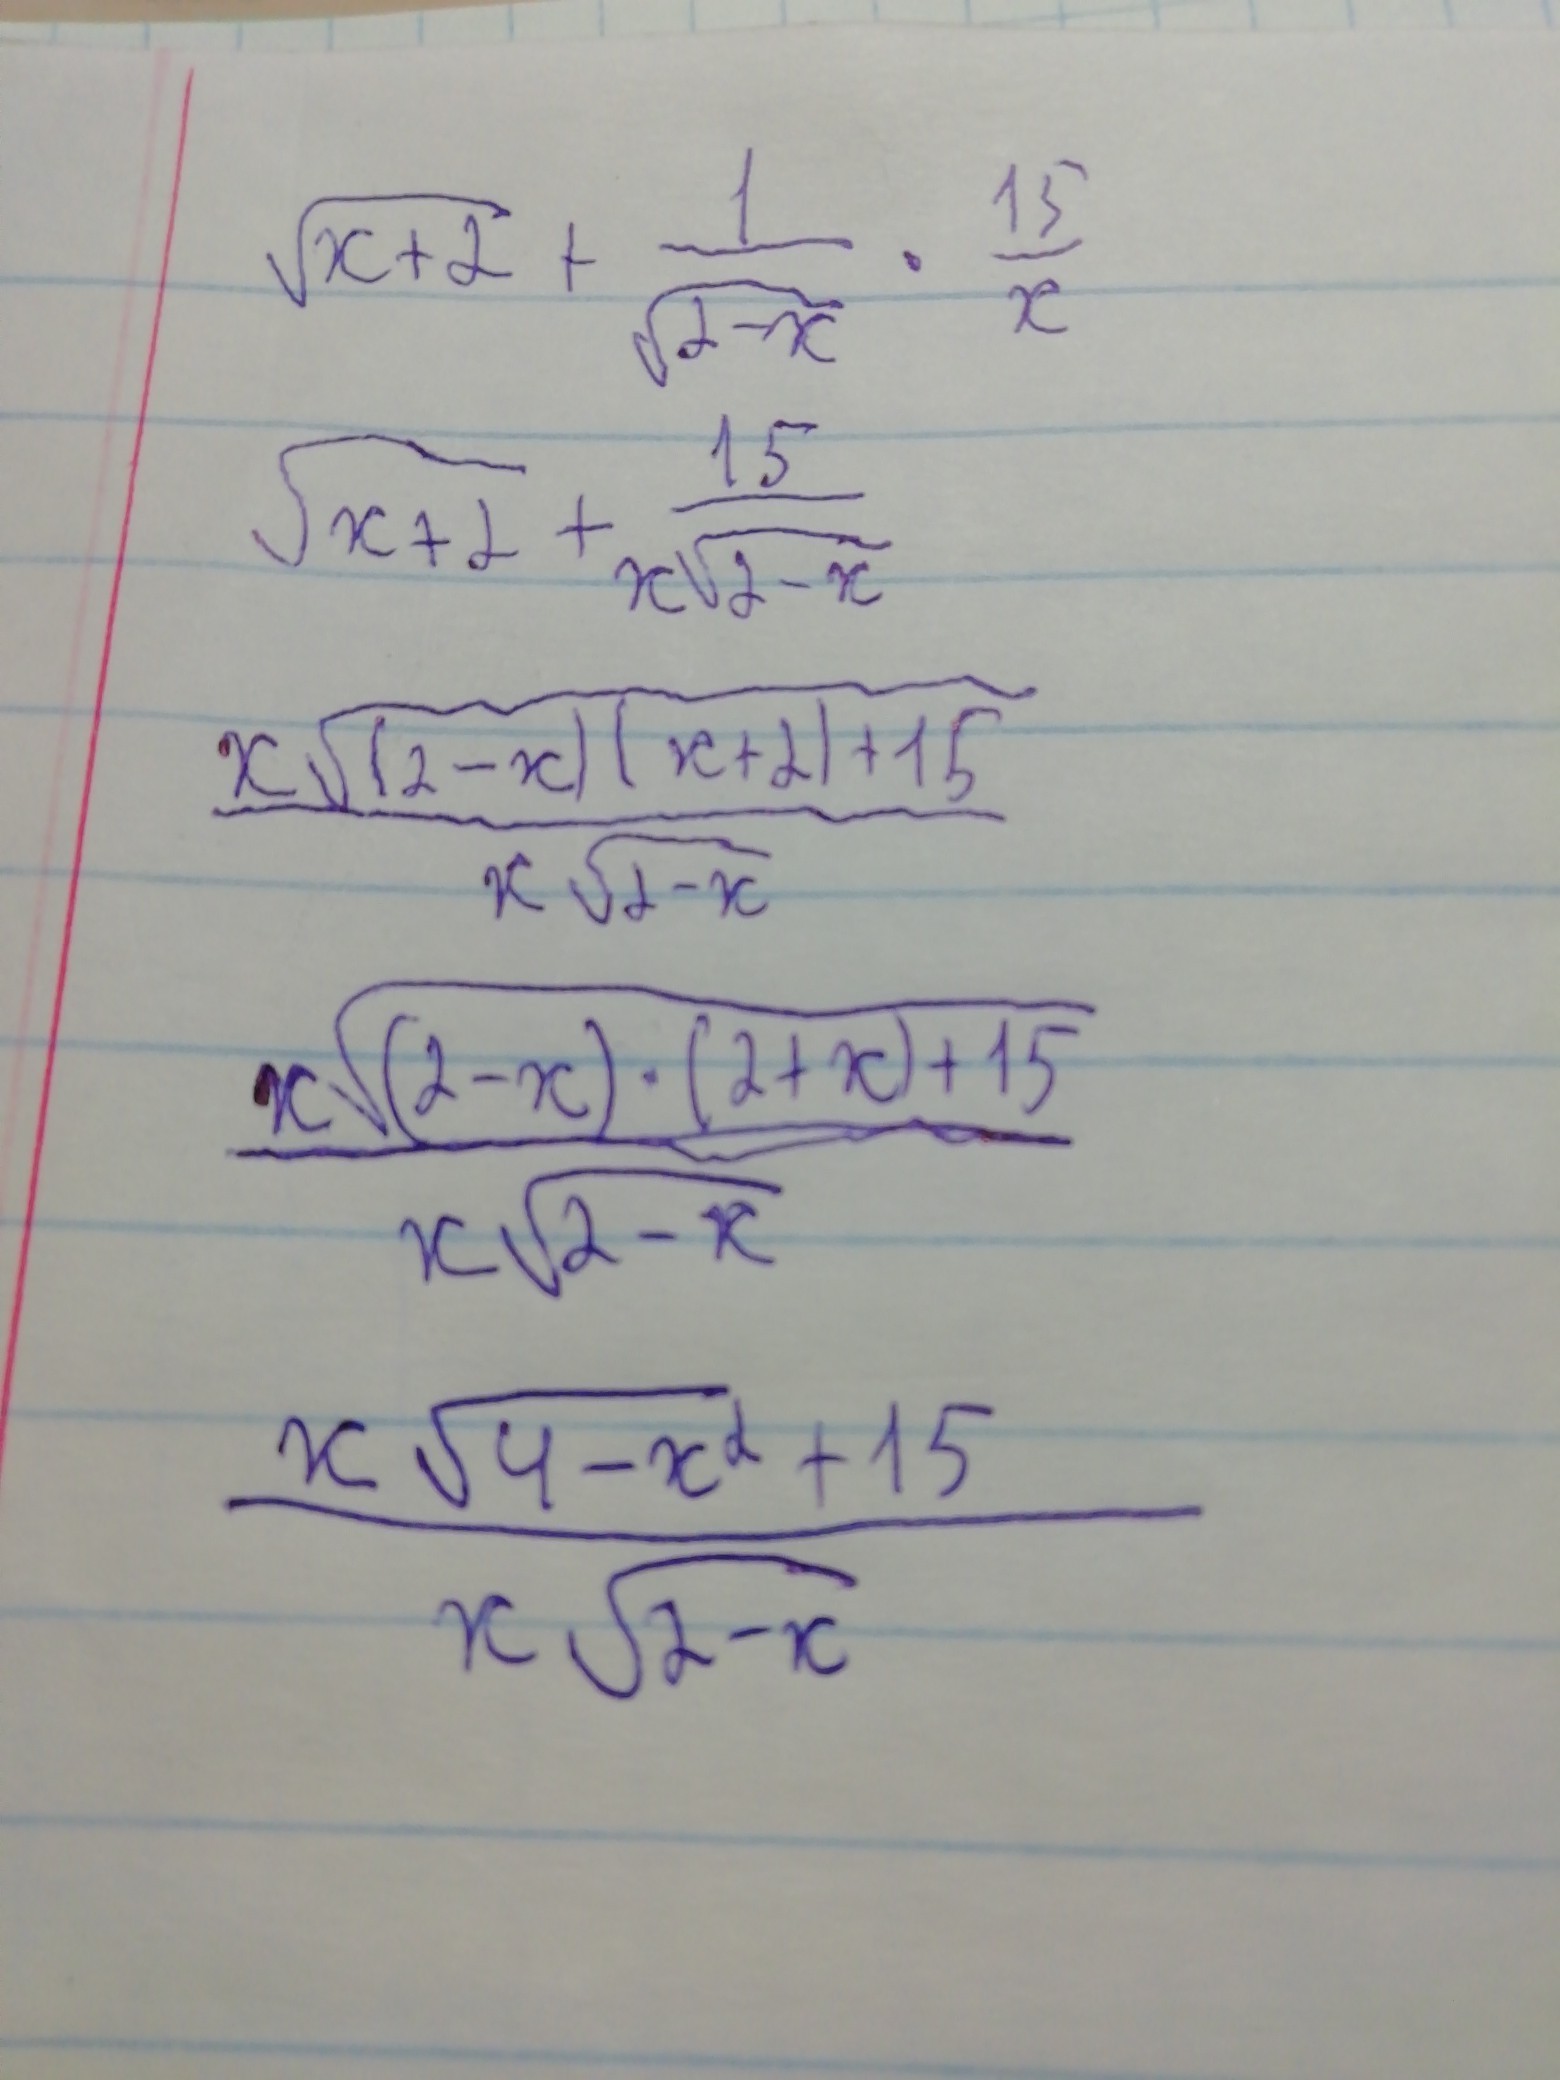 √(x+2) + 1/√(2-x) · 15/x
√(x+2) + 15/(x√(2-x))
(x√((2-x)(x+2)+15))/(x√(2-x))
(x√((2-x)·(2+x)+15))/(x√(2-x))
(x√(4-x²)+15)/(x√(2-x))